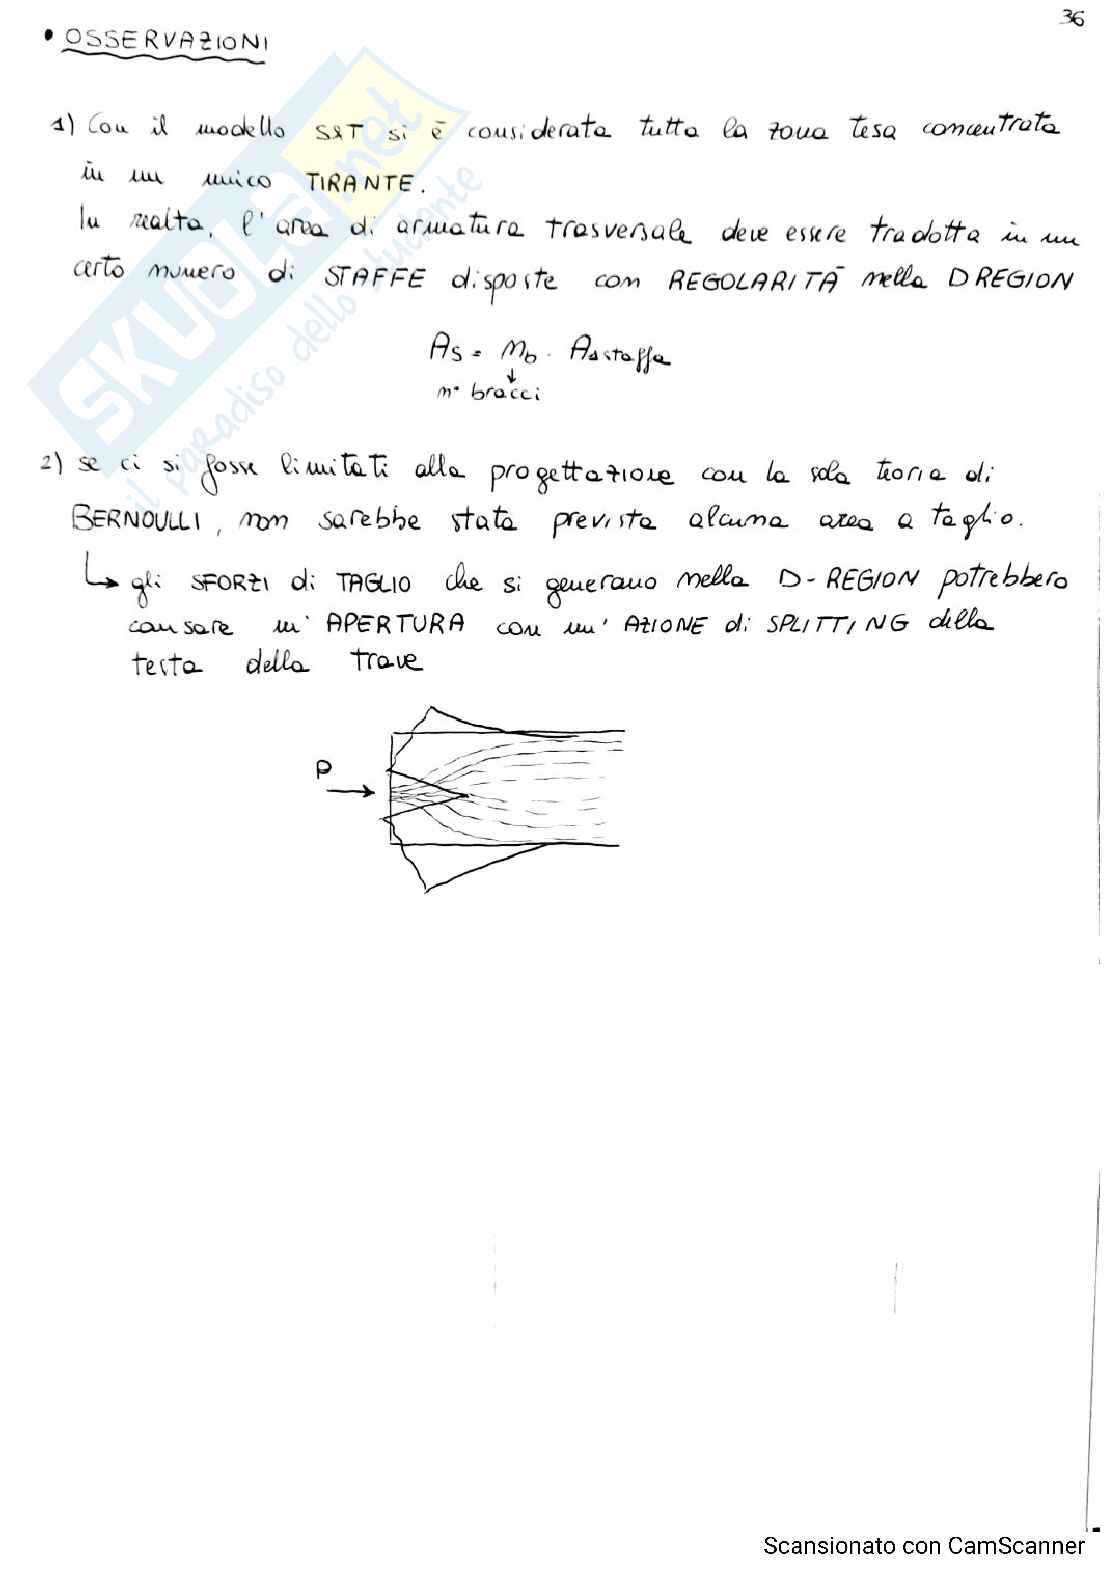 36
• OSSERVAZIONI
1) Con il modello S&T si è considerata tutta la zona tesa concentrata
in un unico TIRANTE.
In realtà, l'area di armatura trasversale deve essere tradotta in un
certo numero di STAFFE disposte con REGOLARITÀ nella D REGION
As = nb · As staffa
↓
n° bracci
2) se ci si fosse limitati alla progettazione con la sola teoria di
BERNOULLI, non sarebbe stata prevista alcuna area a taglio.
↳ gli SFORZI di TAGLIO che si generano nella D-REGION potrebbero
causare un' APERTURA con un' AZIONE di SPLITTING della
testa della trave
P
SKUOLA.net
il paradiso dello studente
Scansionato con CamScanner